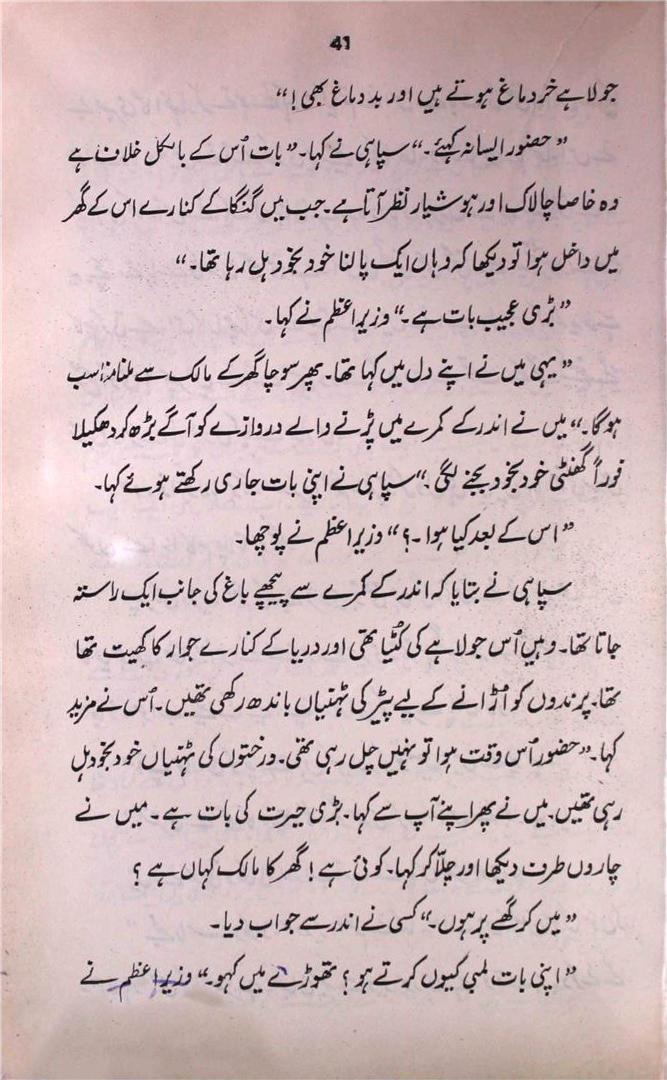 41
جولاہے خر دماغ ہوتے ہیں اور بد دماغ بھی!“
”حضور ایسا نہ کہئے۔“ سپاہی نے کہا۔ ”بات اُس کے بالکل خلاف ہے
وہ خاصا چالاک اور ہوشیار نظر آتا ہے۔ جب میں گنگا کے کنارے اس کے گھر
میں داخل ہوا تو دیکھا کہ وہاں ایک پالنا خود بخود ہل رہا تھا۔“
”بڑی عجیب بات ہے۔“ وزیرِ اعظم نے کہا۔
”یہی میں نے اپنے دل میں کہا تھا۔ پھر سوچا گھر کے مالک سے ملنا مناسب
ہوگا۔“ میں نے اندر کے کمرے میں پڑنے والے دروازے کو آگے بڑھ کر دھکیلا
فوراً گھنٹی خود بخود بجنے لگی۔“ سپاہی نے اپنی بات جاری رکھتے ہوئے کہا۔
”اس کے بعد کیا ہوا۔؟“ وزیرِ اعظم نے پوچھا۔
سپاہی نے بتایا کہ اندر کے کمرے سے پیچھے باغ کی جانب ایک راستہ
جاتا تھا۔ وہیں اُس جولاہے کی کُٹیا تھی اور دریا کے کنارے جوار کا کھیت تھا
تھا۔ پرندوں کو اُڑانے کے لیے پیڑ کی ٹہنیاں باندھ رکھی تھیں۔ اُس نے مزید
کہا۔ ”حضور اُس وقت ہوا تو نہیں چل رہی تھی۔ درختوں کی ٹہنیاں خود بخود ہل
رہی تھیں۔ میں نے پھر اپنے آپ سے کہا۔ بڑی حیرت کی بات ہے۔ میں نے
چاروں طرف دیکھا اور چلّا کر کہا۔ کوئی ہے! گھر کا مالک کہاں ہے؟
”میں کرگھے پر ہوں۔“ کسی نے اندر سے جواب دیا۔
”اپنی بات لمبی کیوں کرتے ہو؟ تھوڑے میں کہو۔“ وزیرِ اعظم نے